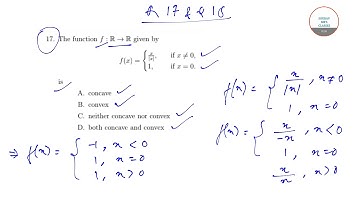 Q 17 & Q 18
17. The function f : ℝ → ℝ given by
f(x) = { x/|x|, if x ≠ 0,
1, if x = 0.
is
A. concave
B. convex
C. neither concave nor convex
D. both concave and convex
f(x) = { x/|x|, x ≠ 0
1, x = 0
f(x) = { x/-x, x < 0
1, x = 0
x/x, x > 0
⇒ f(x) = { -1, x < 0
1, x = 0
1, x > 0